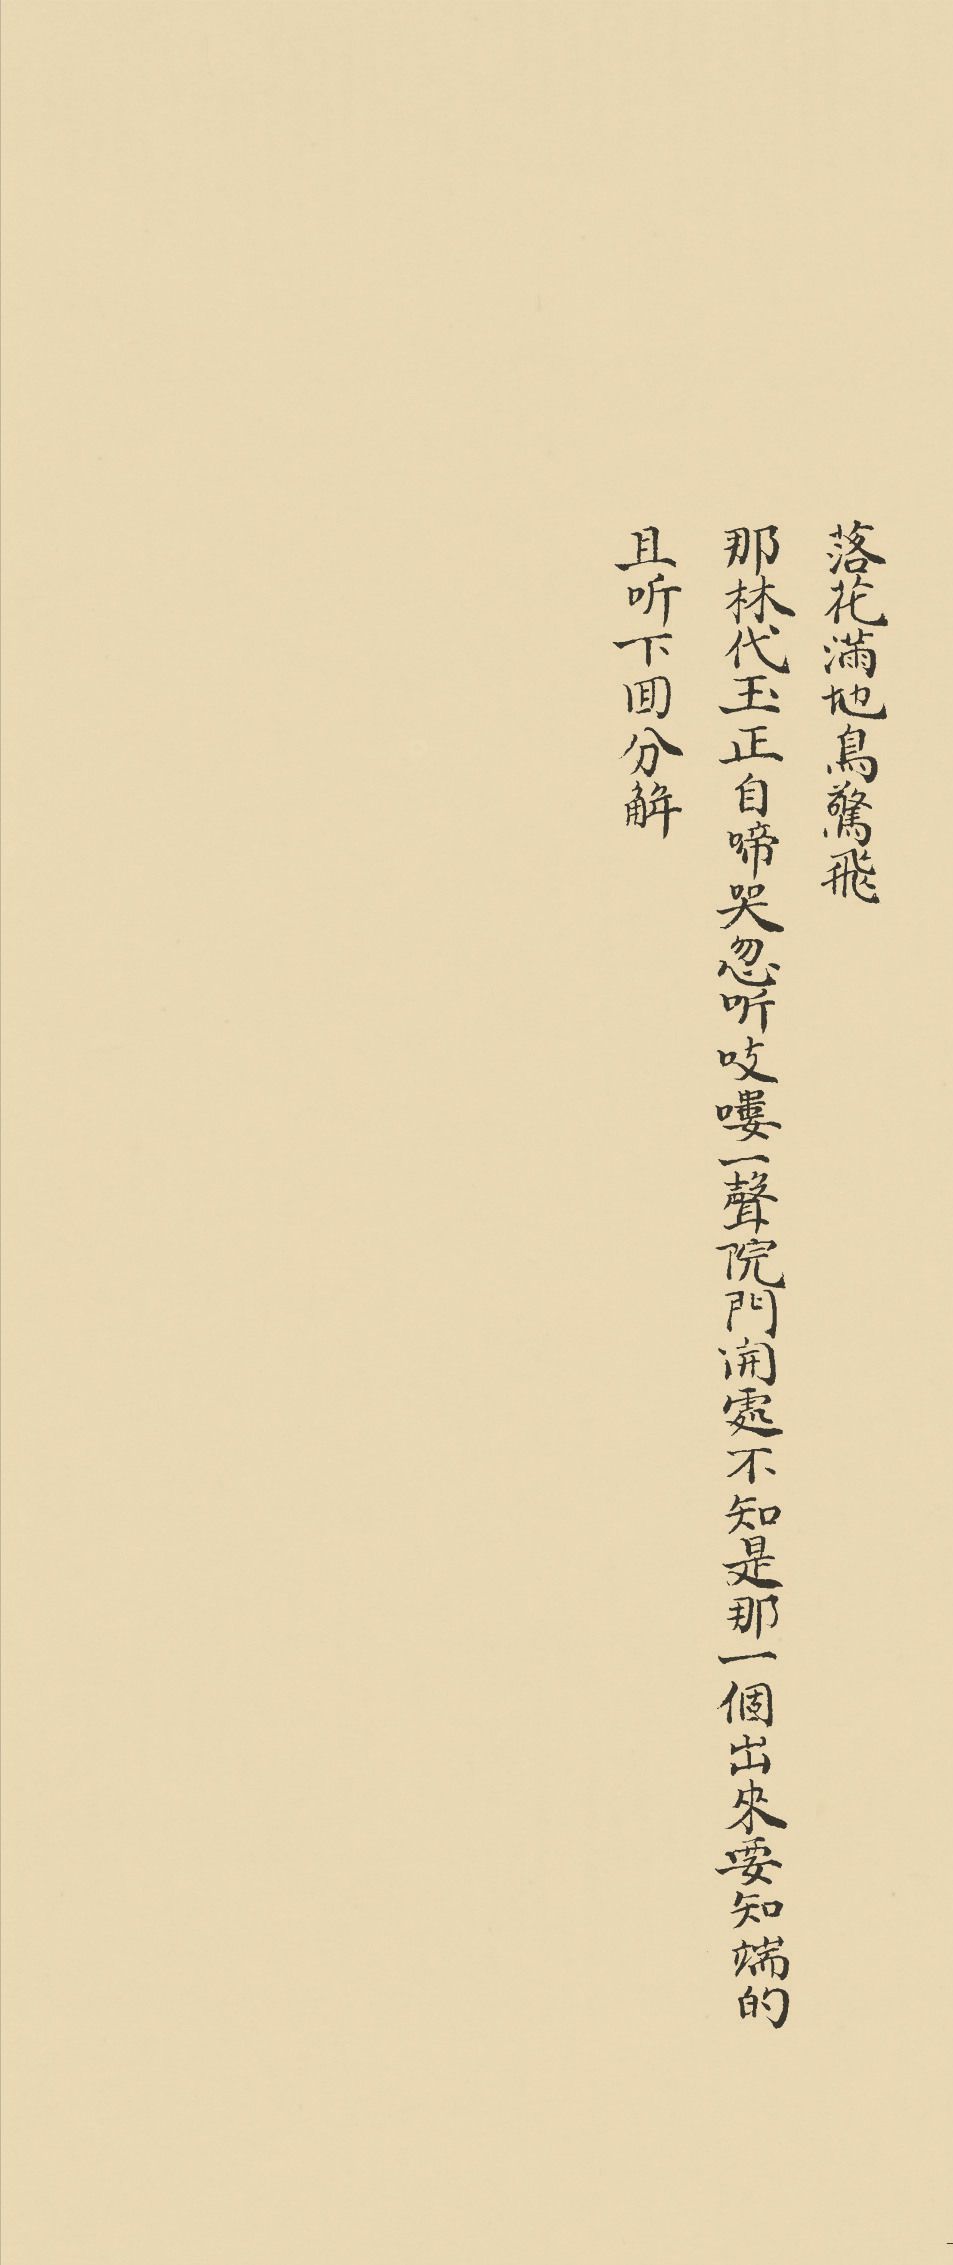 落花滿地鳥驚飛
那林代玉正自啼哭忽听吱嘍一聲院門開處不知是那一個出來要知端的
且听下囬分解